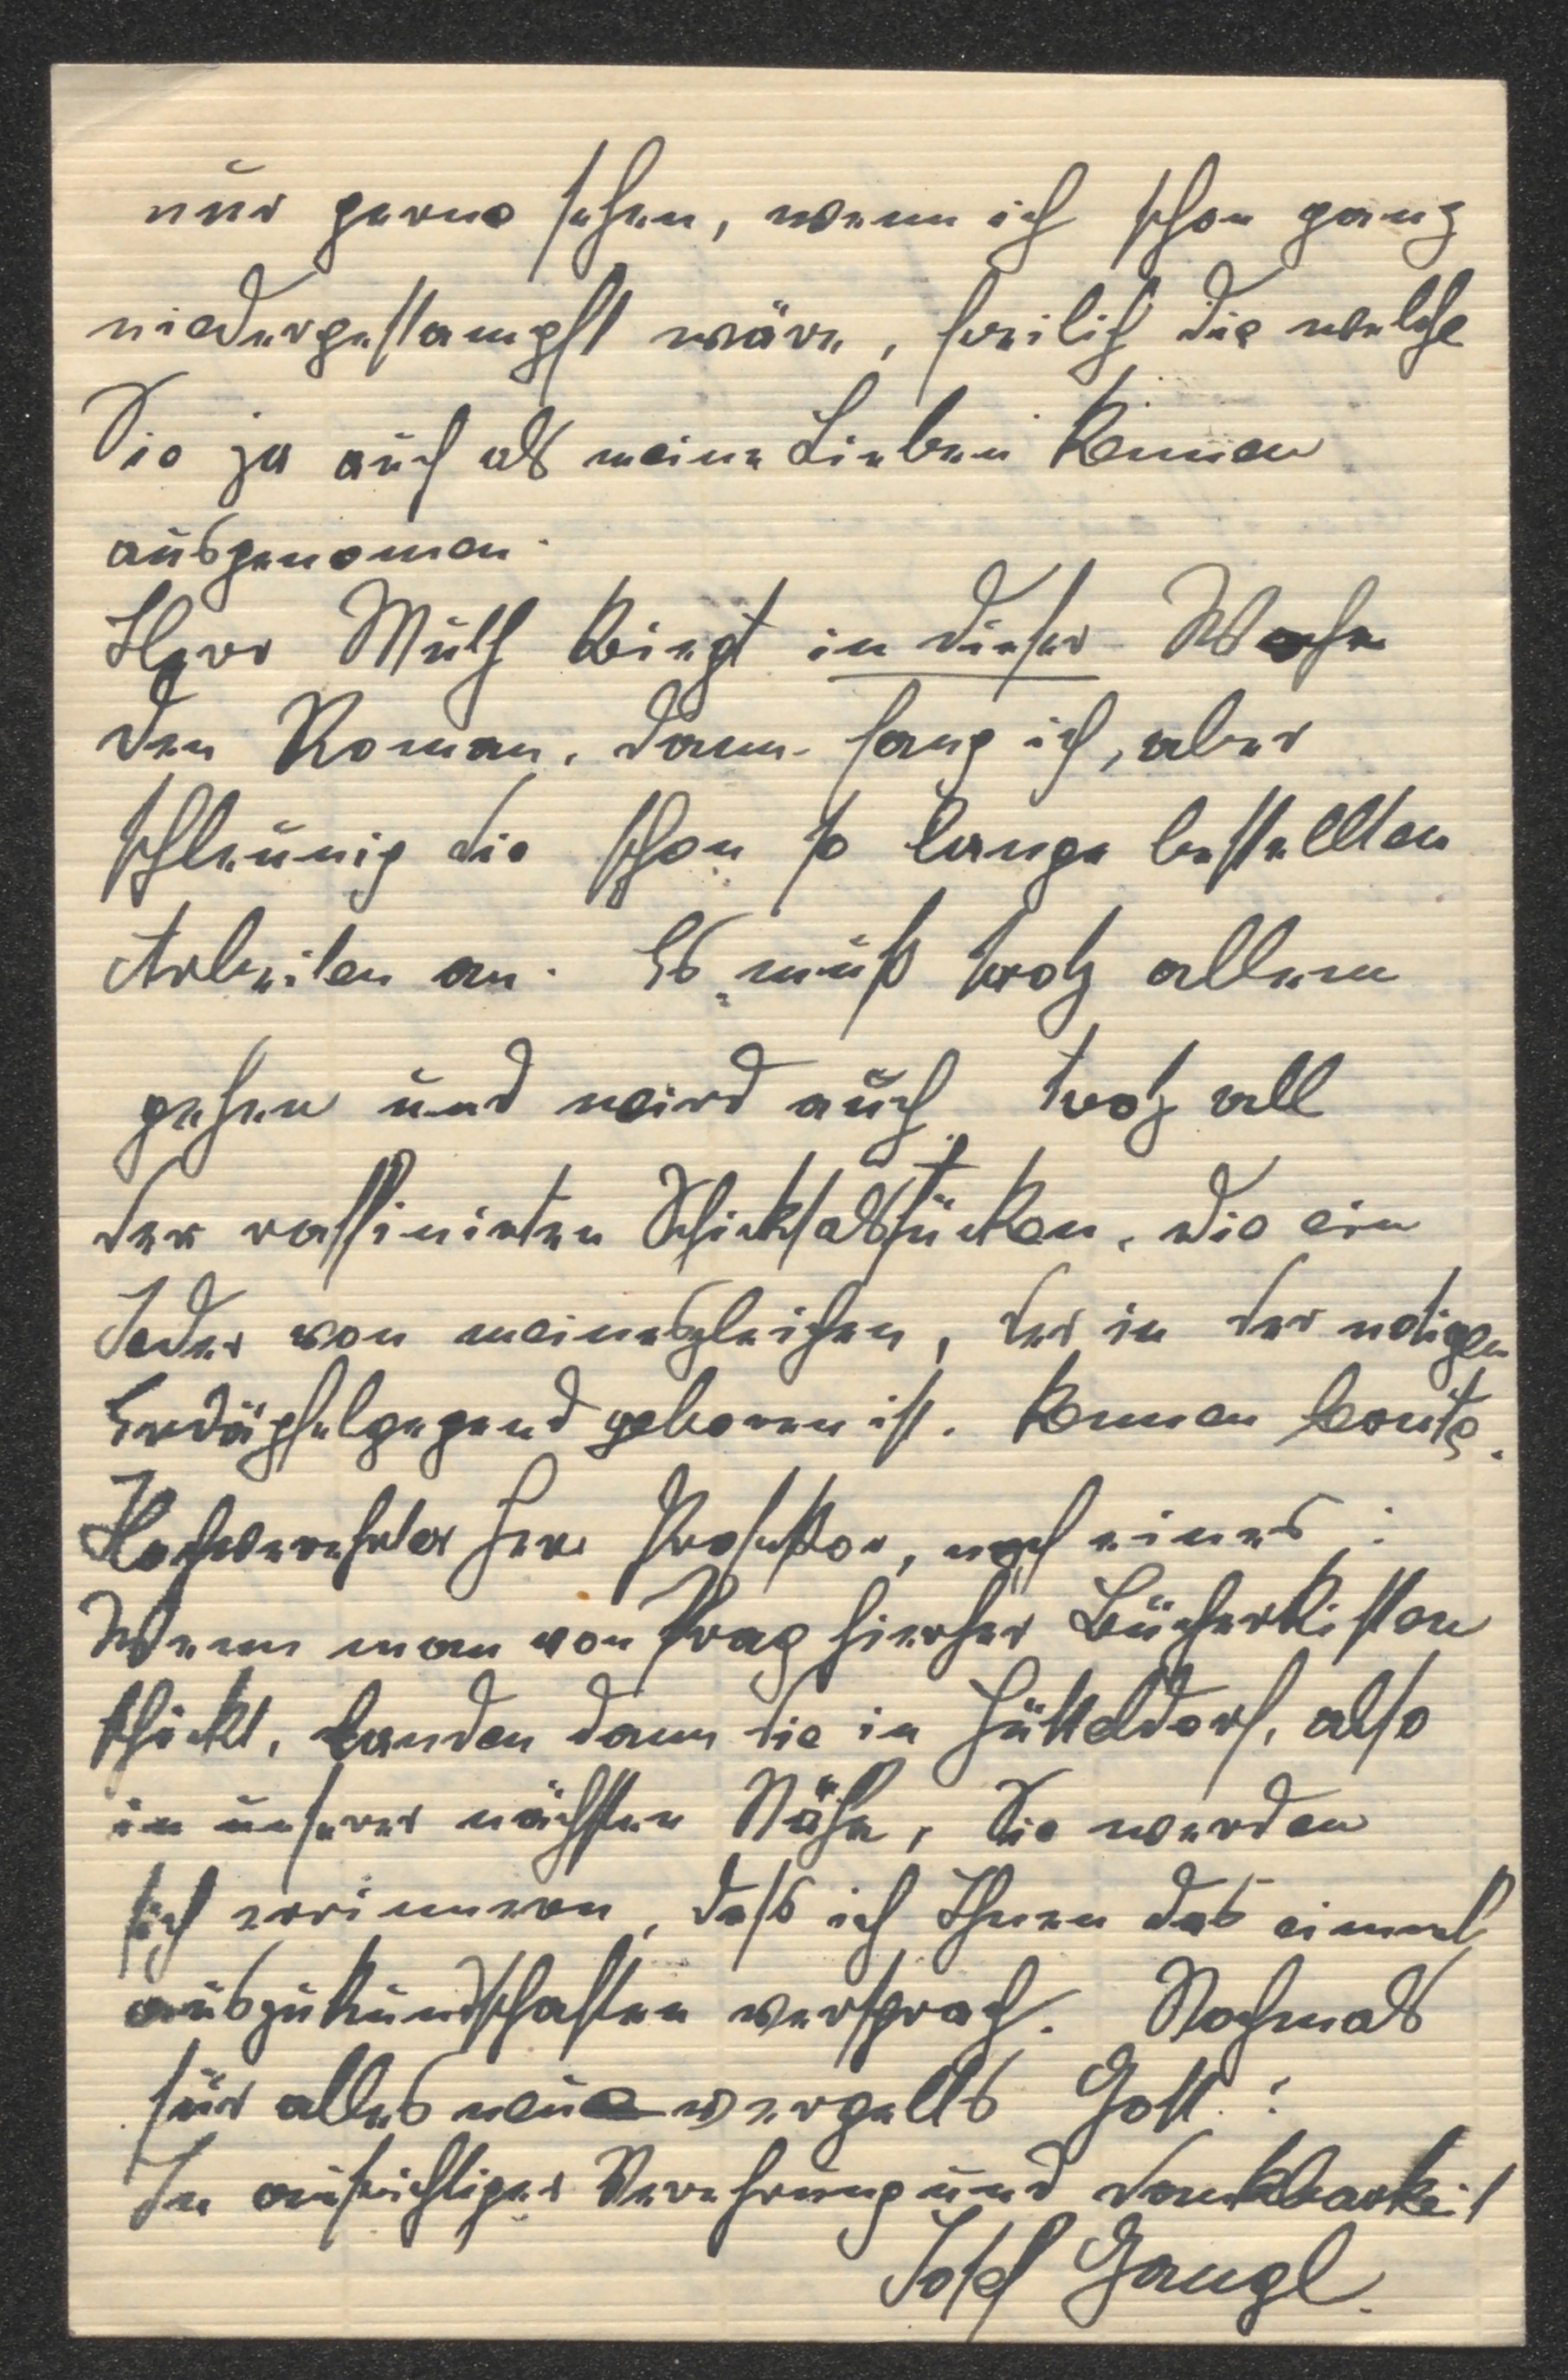 nur gerne sehen, wenn ich schon ganz
niedergestampft wäre, freilich die welche
Sie ja auch als meine Lieben kennen
ausgenomen.
Herr Muth kriegt in dieser Woche
den Roman, dann fang ich, aber
schleunig die schon so lange bestellten
Arbeiten an. Es muß trotz allem
gehen und wird auch trotz all
der raffinierten Schicksalstücken, die ein
Jeder von meinesgleichen, der in der notigen
Erdäpfelgegend geboren ist. kennen lernte.
Hochverehrter Herr Professor, noch eines:
Wenn man von Prag hierher Bücherkisten
schickt, landen dann sie in Hütteldorf, also
in unserer nächsten Nähe, Sie werden
sich errinnern, dass ich Ihnen das einmal
auszukundschaften versprach. Nochmals
für alles neue vergelts Gott!
In aufrichtiger Verehrung und Dankbarkeit
Josef Gangl.